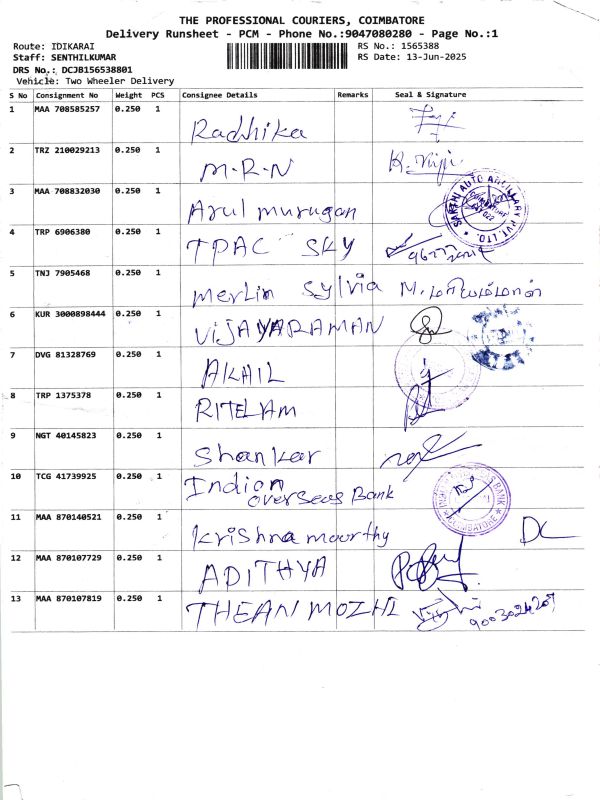 THE PROFESSIONAL COURIERS, COIMBATORE
Delivery Runsheet - PCM - Phone No.:9047080280 - Page No.:1
Route: IDIKARAI RS No.: 1565388
Staff: SENTHILKUMAR RS Date: 13-Jun-2025
DRS No.: DCJB156538801
Vehicle: Two Wheeler Delivery
S No Consignment No Weight PCS Consignee Details Remarks Seal & Signature
1 MAA 708585257 0.250 1 Radhika
2 TRZ 210029213 0.250 1 M.R.N
3 MAA 708832030 0.250 1 Arul murugan SARTHI AUTO ANCILLARY PVT. LTD.
4 TRP 6906380 0.250 1 TPAC SKY
5 TNJ 7905468 0.250 1 Merlin Sylvia M. மரியம்மாள்
6 KUR 3000898444 0.250 1 VIJAYARAMAN
7 DVG 81328769 0.250 1 AKHIL
8 TRP 1375378 0.250 1 RITELAM
9 NGT 40145823 0.250 1 Shankar
10 TCG 41739925 0.250 1 Indian
overseas Bank COIMBATORE
11 MAA 870140521 0.250 1 Krishna moorthy DC
12 MAA 870107729 0.250 1 ADITHYA
13 MAA 870107819 0.250 1 THEAN MOZHI 9003024207